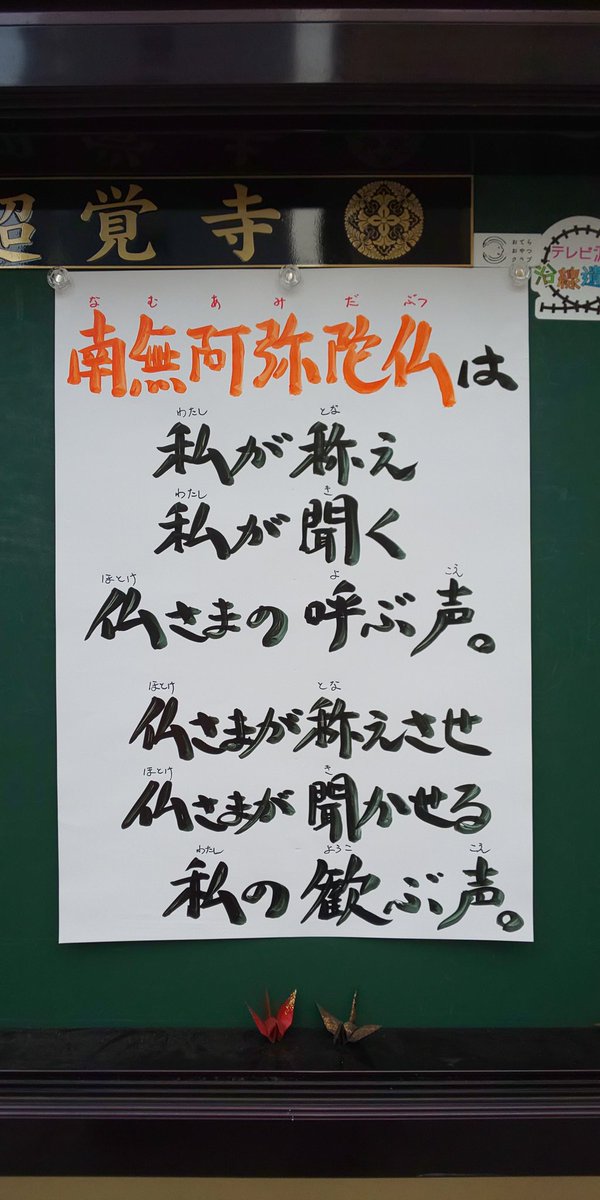 超覚寺
おてら
おやつ
クラブ
テレビ
沿線
なむあみだぶつ
南無阿弥陀仏は
わたし とな
私が称え
わたし き
私が聞く
ほとけ よ こえ
仏さまの呼ぶ声。
ほとけ とな
仏さまが称えさせ
ほとけ き
仏さまが聞かせる
わたし よろこ こえ
私の歓ぶ声。